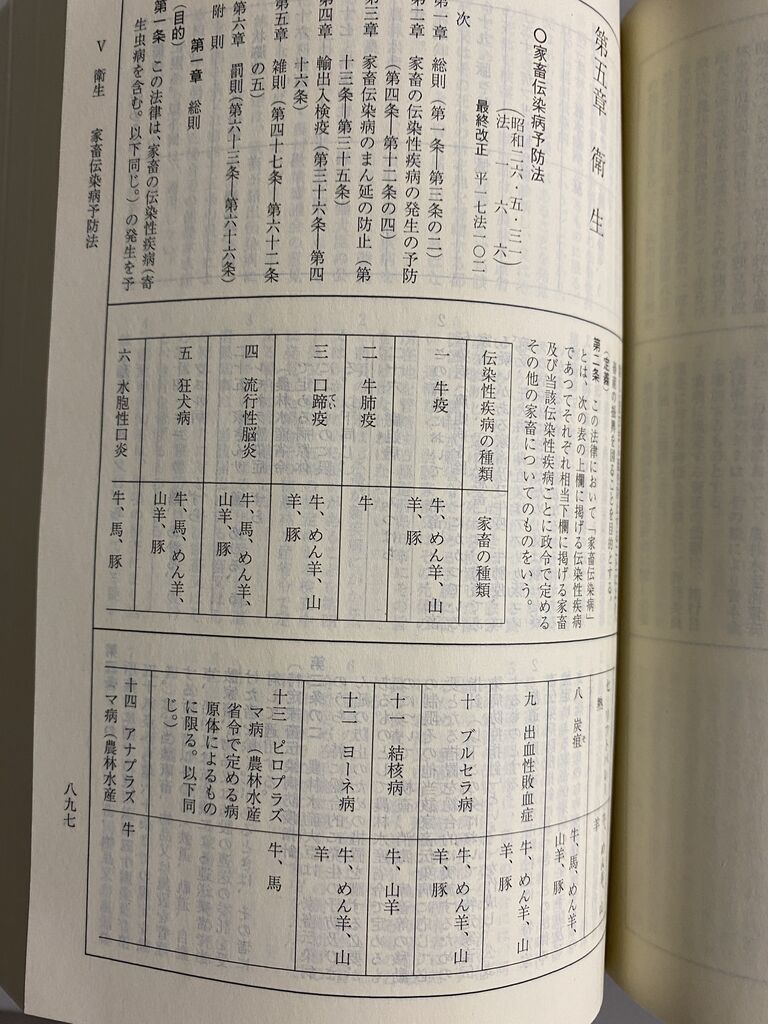 第五章 衛生
〇家畜伝染病予防法
(昭和二六・五・三一
法一六六)
最終改正 平一七法一〇二
次
第一章 総則(第一条―第三条の二)
第二章 家畜の伝染性疾病の発生の予防
(第四条―第十二条の四)
第三章 家畜伝染病のまん延の防止(第
十三条―第三十五条)
第四章 輸出入検疫(第三十六条―第四
十六条)
第五章 雑則(第四十七条―第六十二条
の五)
第六章 罰則(第六十三条―第六十六条)
附則
第一章 総則
(目的)
第一条 この法律は、家畜の伝染性疾病(寄
生虫病を含む。以下同じ。)の発生を予
の振興を図ることを目的とする。
(定義)
第二条 この法律において「家畜伝染病」
とは、次の表の上欄に掲げる伝染性疾病
であつてそれぞれ相当下欄に掲げる家畜
及び当該伝染性疾病ごとに政令で定める
その他の家畜についてのものをいう。
伝染性疾病の種類 家畜の種類
一 牛疫 牛、めん羊、山
羊、豚
二 牛肺疫 牛
三 口蹄疫 牛、めん羊、山
てい
羊、豚
四 流行性脳炎 牛、馬、めん羊、
山羊、豚
五 狂犬病 牛、馬、めん羊、
山羊、豚
六 水胞性口炎 牛、馬、豚
七
八 炭疽 牛、馬、めん羊、
そ
山羊、豚
九 出血性敗血症 牛、めん羊、山
羊、豚
十 ブルセラ病 牛、めん羊、山
羊、豚
十一 結核病 牛、山羊
十二 ヨーネ病 牛、めん羊、山
羊
十三 ピロプラズ 牛、馬
マ病(農林水産
省令で定める病
原体によるもの
に限る。以下同
じ。)
十四 アナプラズ 牛
マ病(農林水産
Ⅴ 衛生 家畜伝染病予防法
八九七